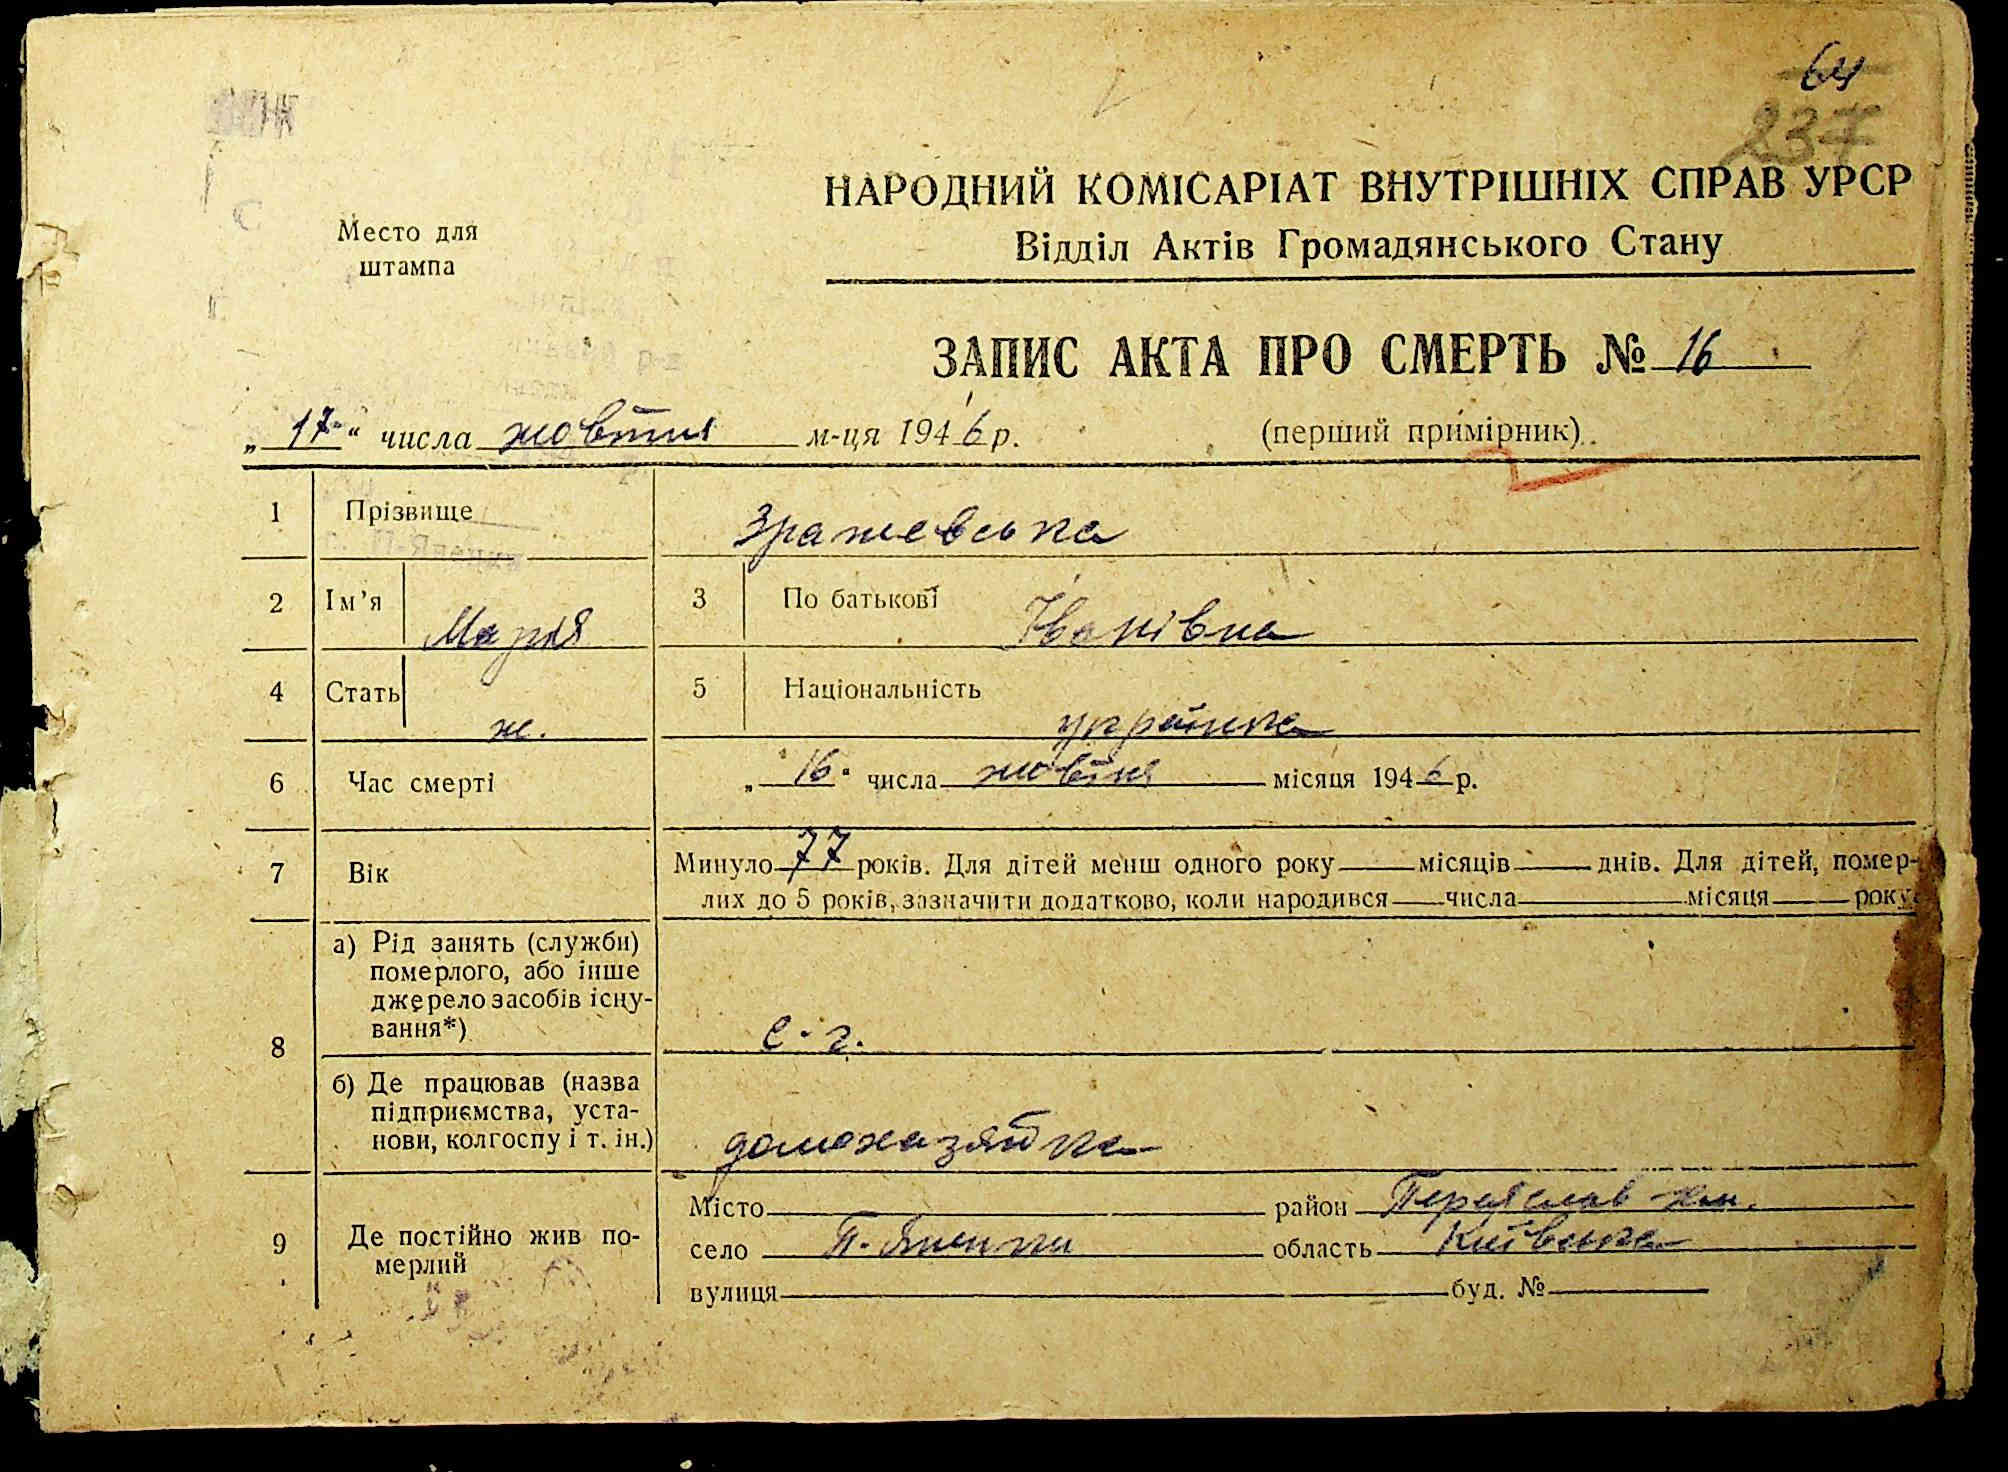 64
237
НАРОДНИЙ КОМІСАРІАТ ВНУТРІШНІХ СПРАВ УРСР
Відділ Актів Громадянського Стану
Место для
штампа
ЗАПИС АКТА ПРО СМЕРТЬ № 16
„ 17 “ числа жовтня м-ця 1946 р. (перший примірник)
1 Прізвище Зражевська
2 Ім’я Марія 3 По батькові Іванівна
4 Стать ж. 5 Національність українка
6 Час смерті „ 16 " числа жовтня місяця 1946 р.
7 Вік Минуло 77 років. Для дітей менш одного року місяців днів. Для дітей, помер-
лих до 5 років, зазначити додатково, коли народився числа місяця року
8 а) Рід занять (служби)
померлого, або інше
джерело засобів існу-
вання*) с. г.
б) Де працював (назва
підприємства, уста-
нови, колгоспу і т. ін.) домохазяйка
9 Де постійно жив по-
мерлий
Місто район Переяслав-Хм.
село область Київська
вулиця буд. №